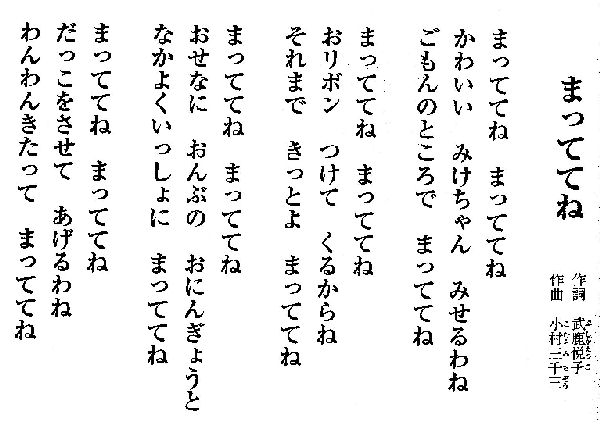 まっててね
作詞 武鹿悦子
作曲 小村三千三
まっててね まっててね
かわいい みけちゃん みせるわね
ごもんのところで まっててね
まっててね まっててね
おリボン つけて くるからね
それまで きっとよ まっててね
まっててね まっててね
おせなに おんぶの おにんぎょうと
なかよくいっしょに まっててね
まっててね まっててね
だっこをさせて あげるわね
わんわんきたって まっててね